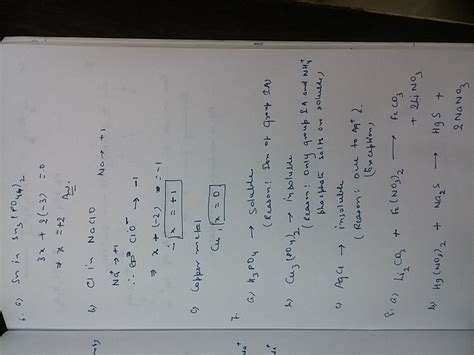 6. a) Sn in Sn3(PO4)2
3x + 2(-3) = 0
⇒ x = +2 Ans.
b) Cl in NaClO
Na+ → +1
∴ ClO- → -1
⇒ x + (-2) = -1
∴ x = +1
c) Copper metal
Cu, x = 0
7. a) K3PO4 → Soluble
(Reason: Ion of Group IA)
b) Cu3(PO4)2 → insoluble
(Reason: Only group IA and NH4+
phosphate salts are soluble)
c) AgCl → insoluble
(Reason: due to Ag+
(Exception)
8. a) Li2CO3 + Fe(NO3)2 → FeCO3
+ 2LiNO3
b) Hg(NO3)2 + Na2S → HgS +
2NaNO3